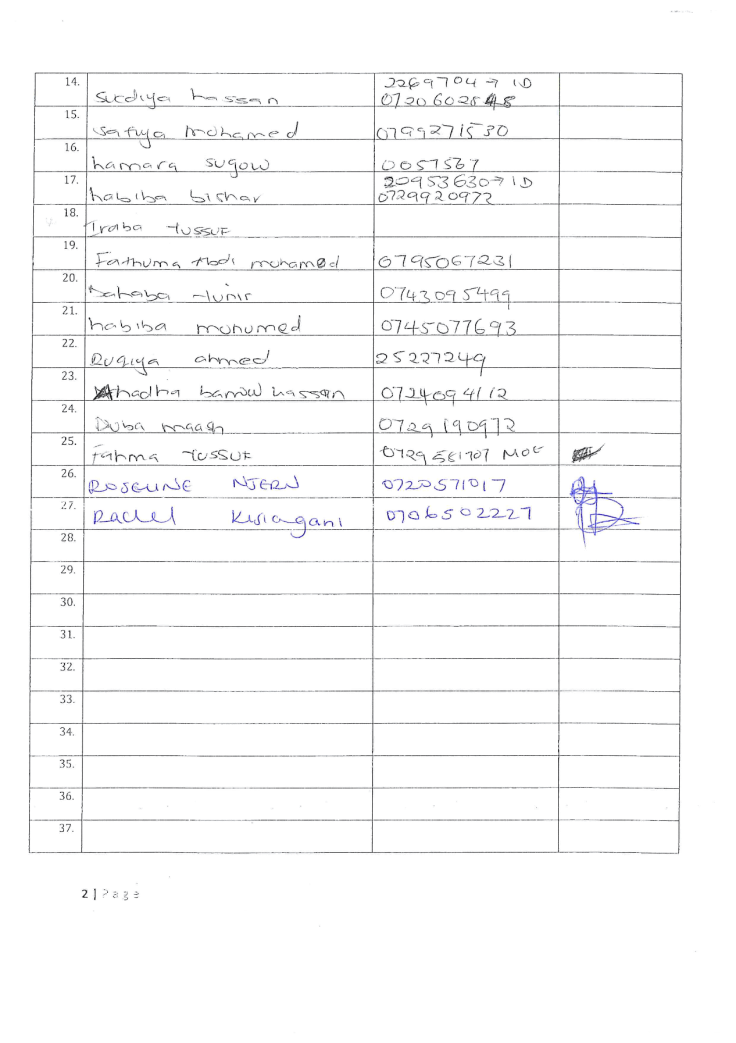 14. 2269704 → ID
Surdiya hassan 0720602848
15.
Safiya mohamed 0799271530
16.
hamara sugow 0057567
17. 20953630 → ID
habiba bishar 0729920972
18.
Iraba Yussuf
19.
Fathuma Abdi mohamed 0795067231
20.
Dahaba Yunis 0743095499
21.
habiba mohumed 0745077693
22.
Ruqiya ahmed 25227249
23.
barrow hassan 0724094112
24.
Duba maash 0729190972
25.
Fahma Yussuf 0729561707 MOE
26.
ROSELINE NJERU 0720571017
27.
Rachel Kisiagani 0706502227
28.
29.
30.
31.
32.
33.
34.
35.
36.
37.
2 | Page